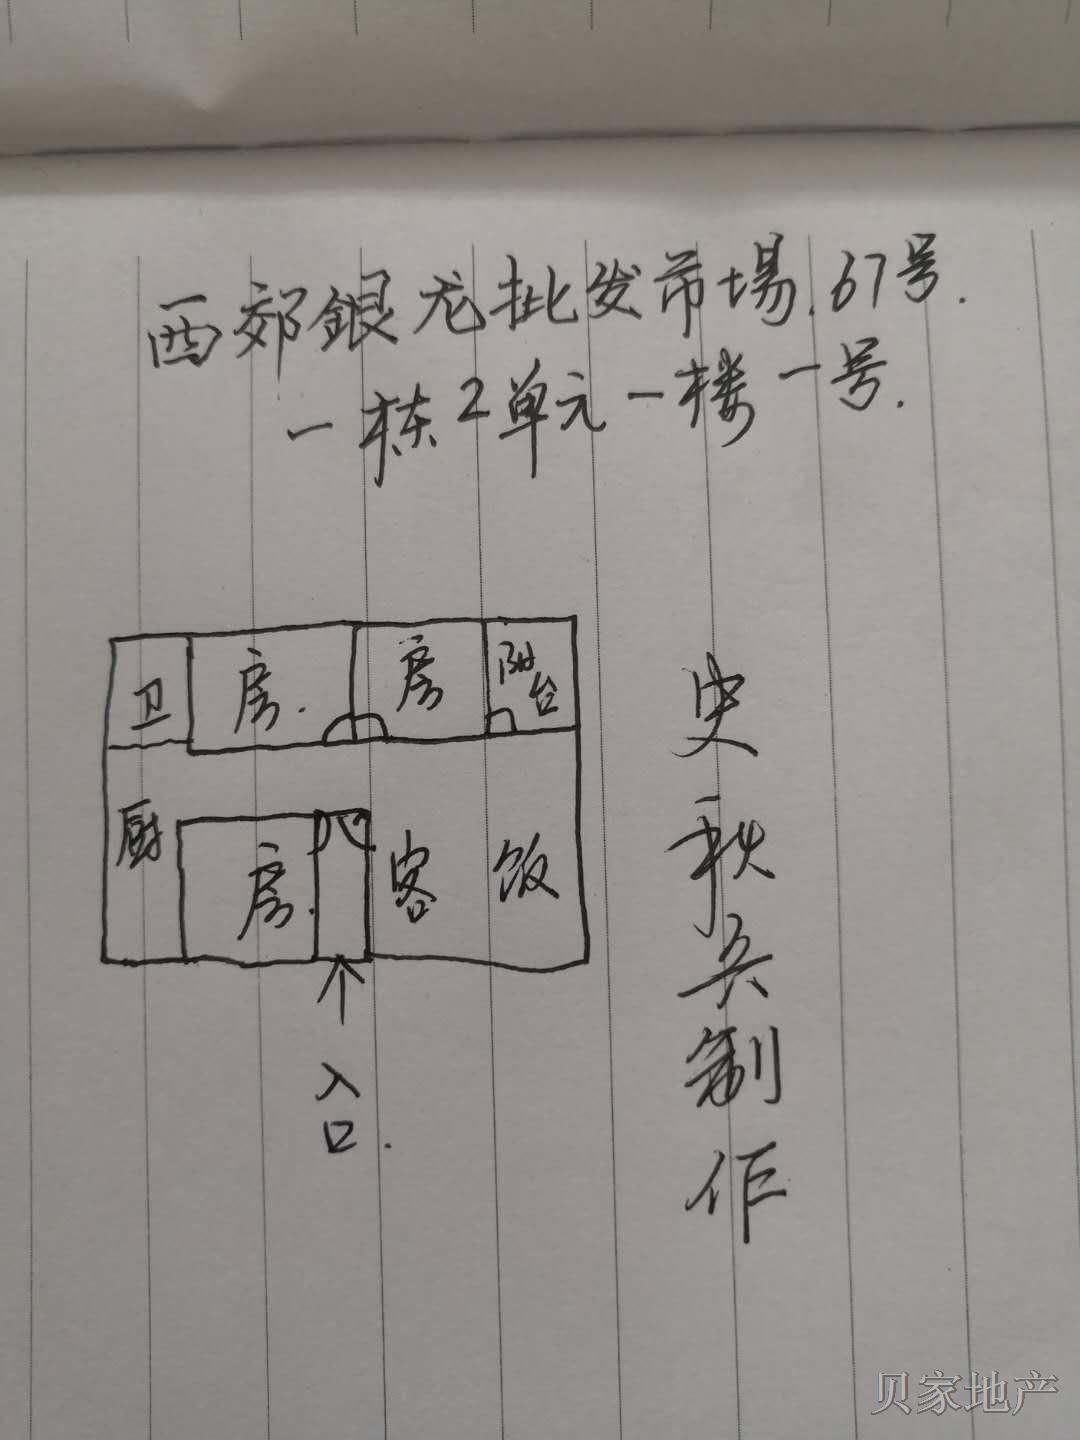 西郊銀龙批发市場.67号.
一栋2单元一楼一号.
卫
房.
房
阳台
厨
房.
客
饭
入口.
史秋兵制作
贝家地产